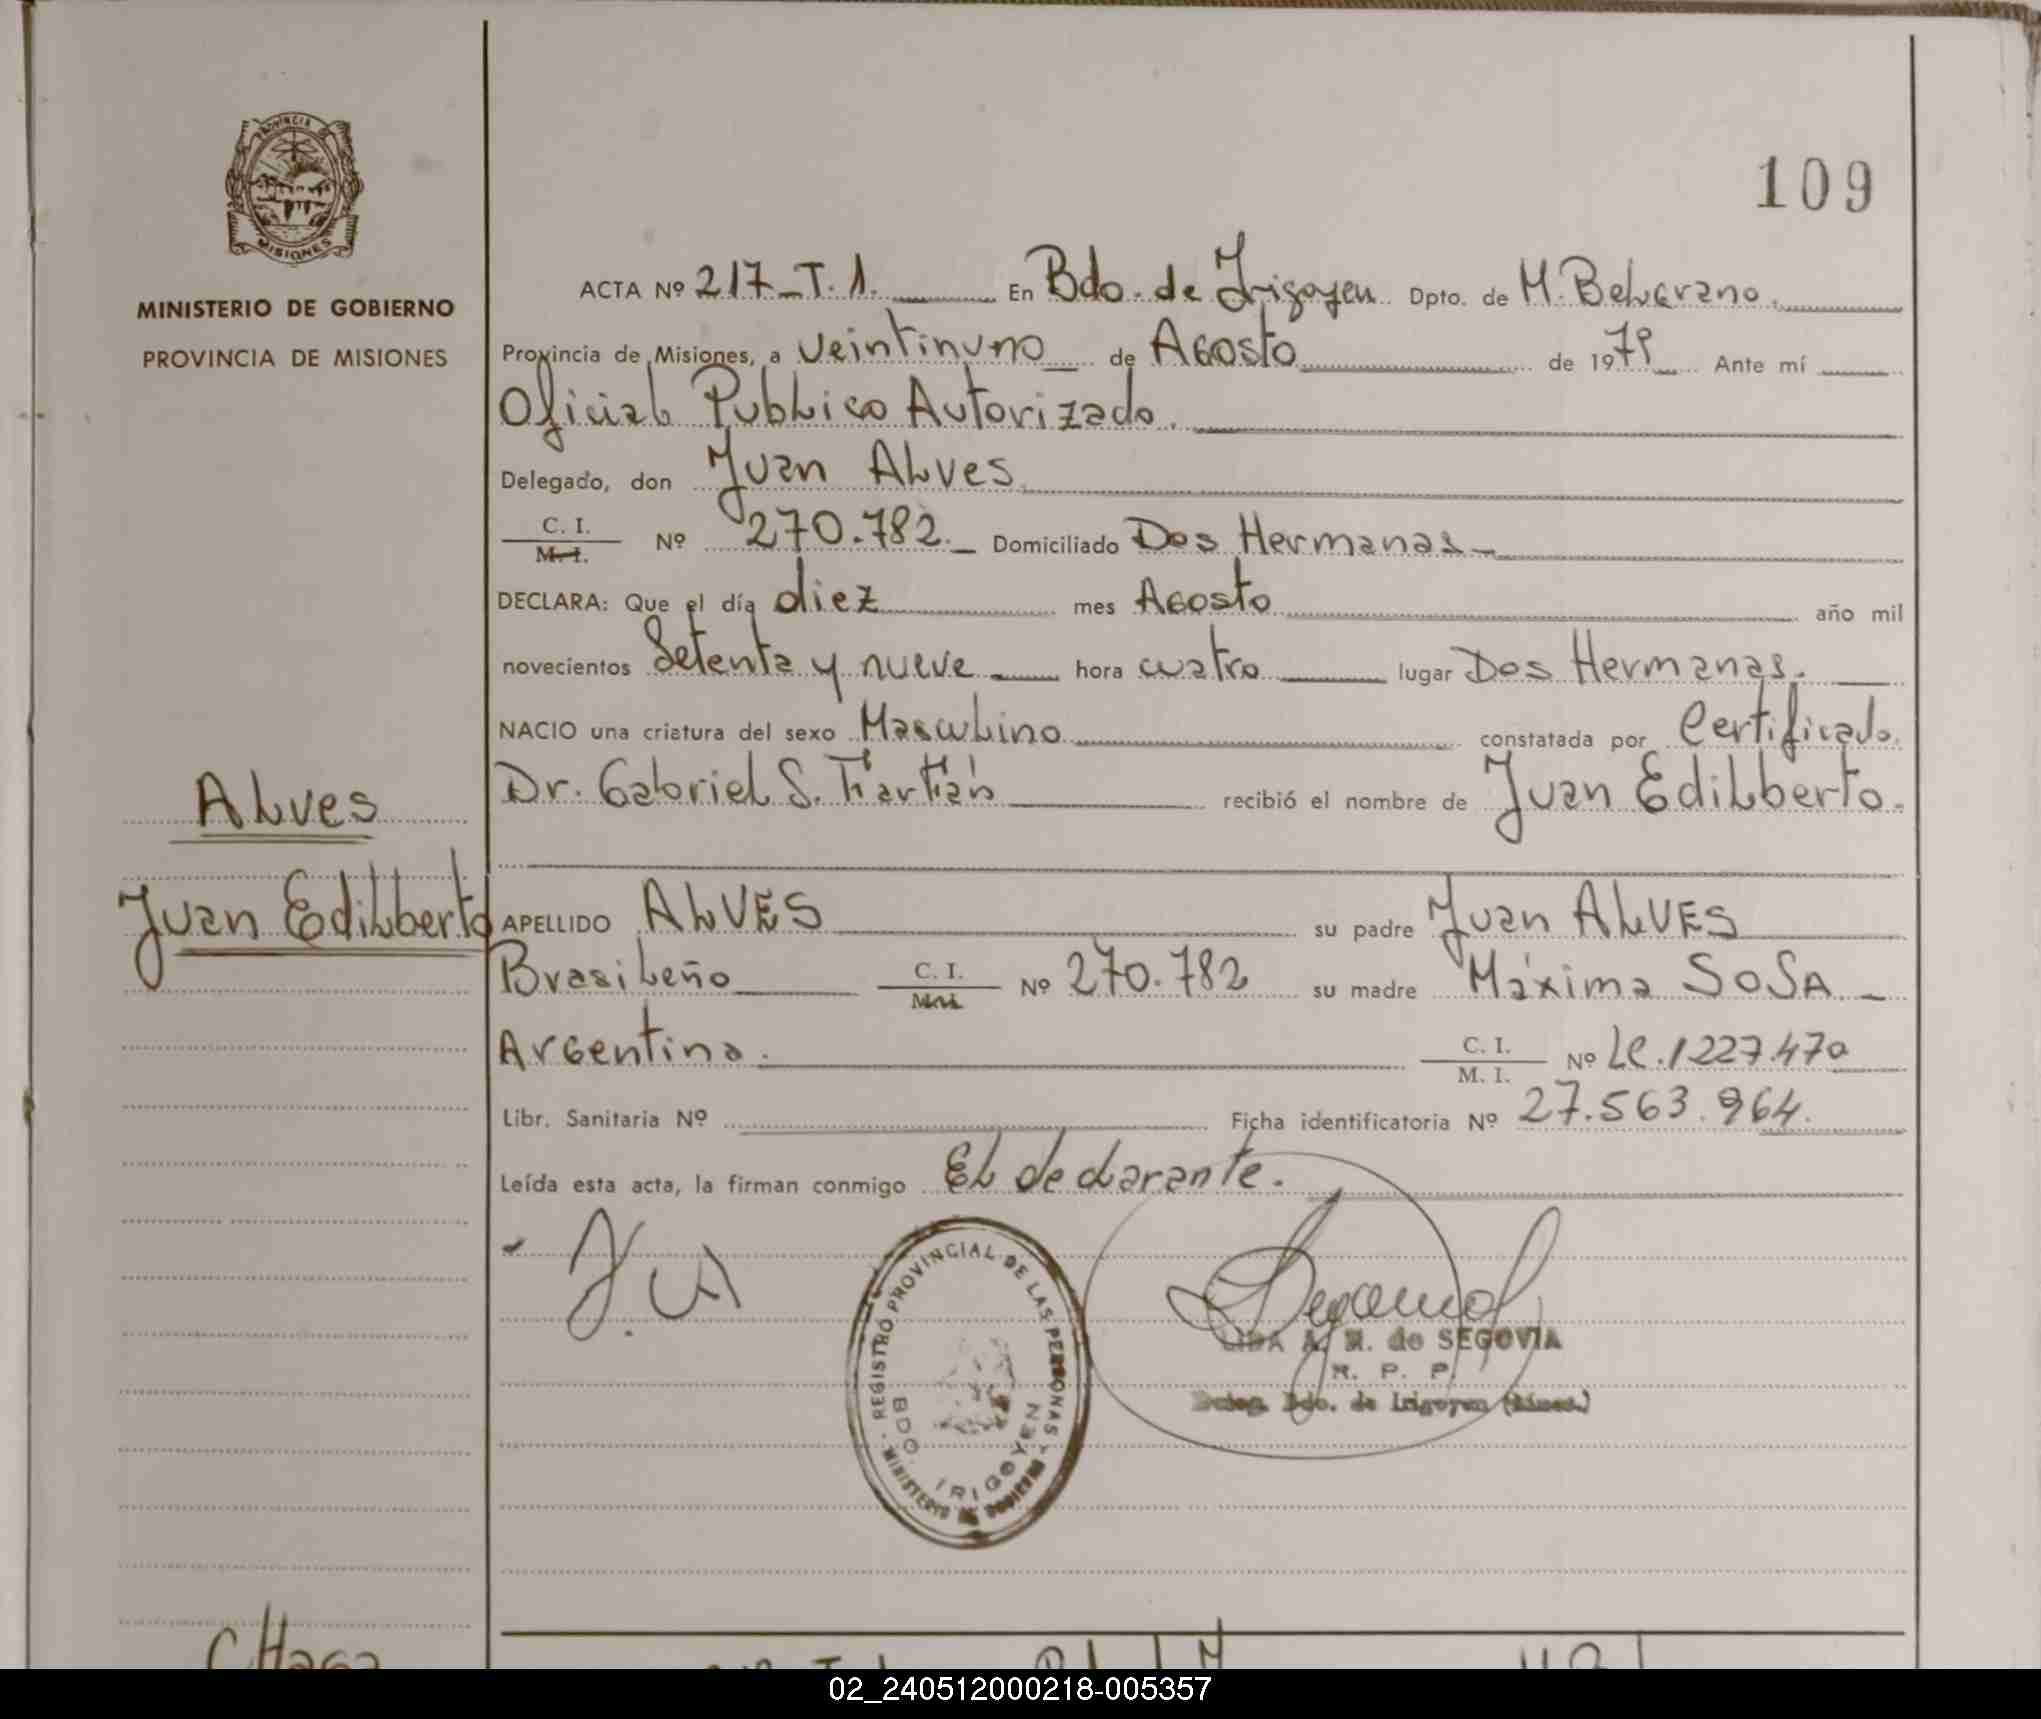 PROVINCIA DE
MISIONES
MINISTERIO DE GOBIERNO
PROVINCIA DE MISIONES
109
ACTA Nº 217_T.1. En Bdo. de Irigoyen Dpto. de M. Belgrano.
Provincia de Misiones, a veintinuno de Agosto de 1979 Ante mí
Oficial Publico Autorizado.
Delegado, don Juan Alves
C. I. Nº 270.782._ Domiciliado Dos Hermanas_
M. I.
DECLARA: Que el día diez mes Agosto año mil
novecientos Setenta y nueve hora cuatro lugar Dos Hermanas.
NACIO una criatura del sexo Masculino constatada por Certificado.
Dr. Gabriel S. recibió el nombre de Juan Edilberto.
Alves
Juan Edilberto
APELLIDO ALVES su padre Juan ALVES
Brasileño C. I. Nº 270.782 su madre Máxima SOSA _
M. I.
Argentina. C. I. Nº LC.1227.470
M. I.
Libr. Sanitaria Nº Ficha identificatoria Nº 27.563.964.
Leída esta acta, la firman conmigo El declarante.
REGISTRO PROVINCIAL DE LAS PERSONAS - MINISTERIO DE GOBIERNO
BDO. IRIGOYEN
A. R. de SEGOVIA
R. P. P.
Deleg. Bdo. de Irigoyen (Mnes.)
02_240512000218-005357